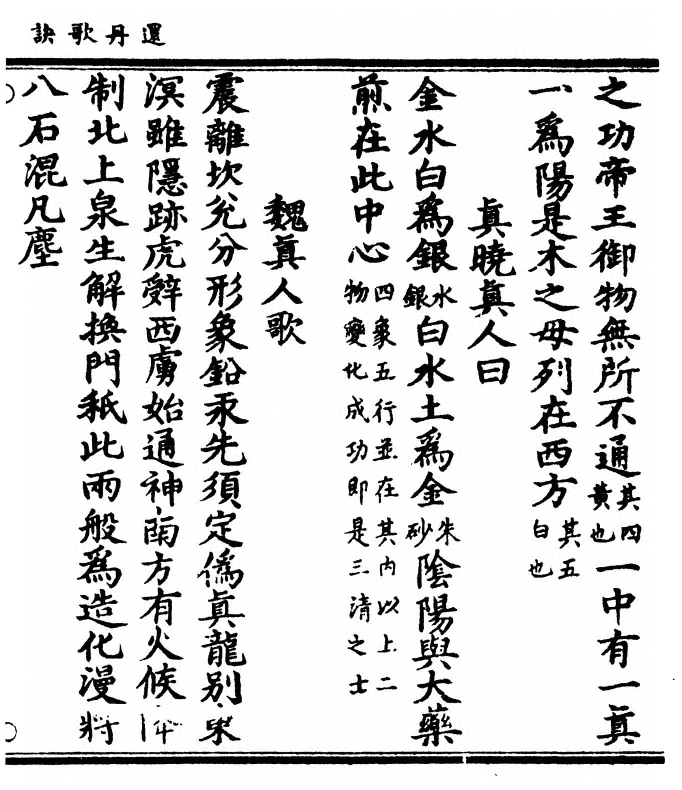 還丹歌訣
之功帝王御物無所不通其四黃也一中有一眞
一爲陽是木之母列在西方其五白也
眞曉眞人曰
金水白爲銀水銀白水土爲金朱砂陰陽與大藥
煎在此中心四象五行並在其內以上二物變化成功即是三清之士
魏眞人歌
震離坎兊分形象鉛汞先須定僞眞龍别東
溟雖隱跡虎辭西虜始通神南方有火候降
制北上泉生解換門秖此兩般爲造化漫將
八石混凡塵